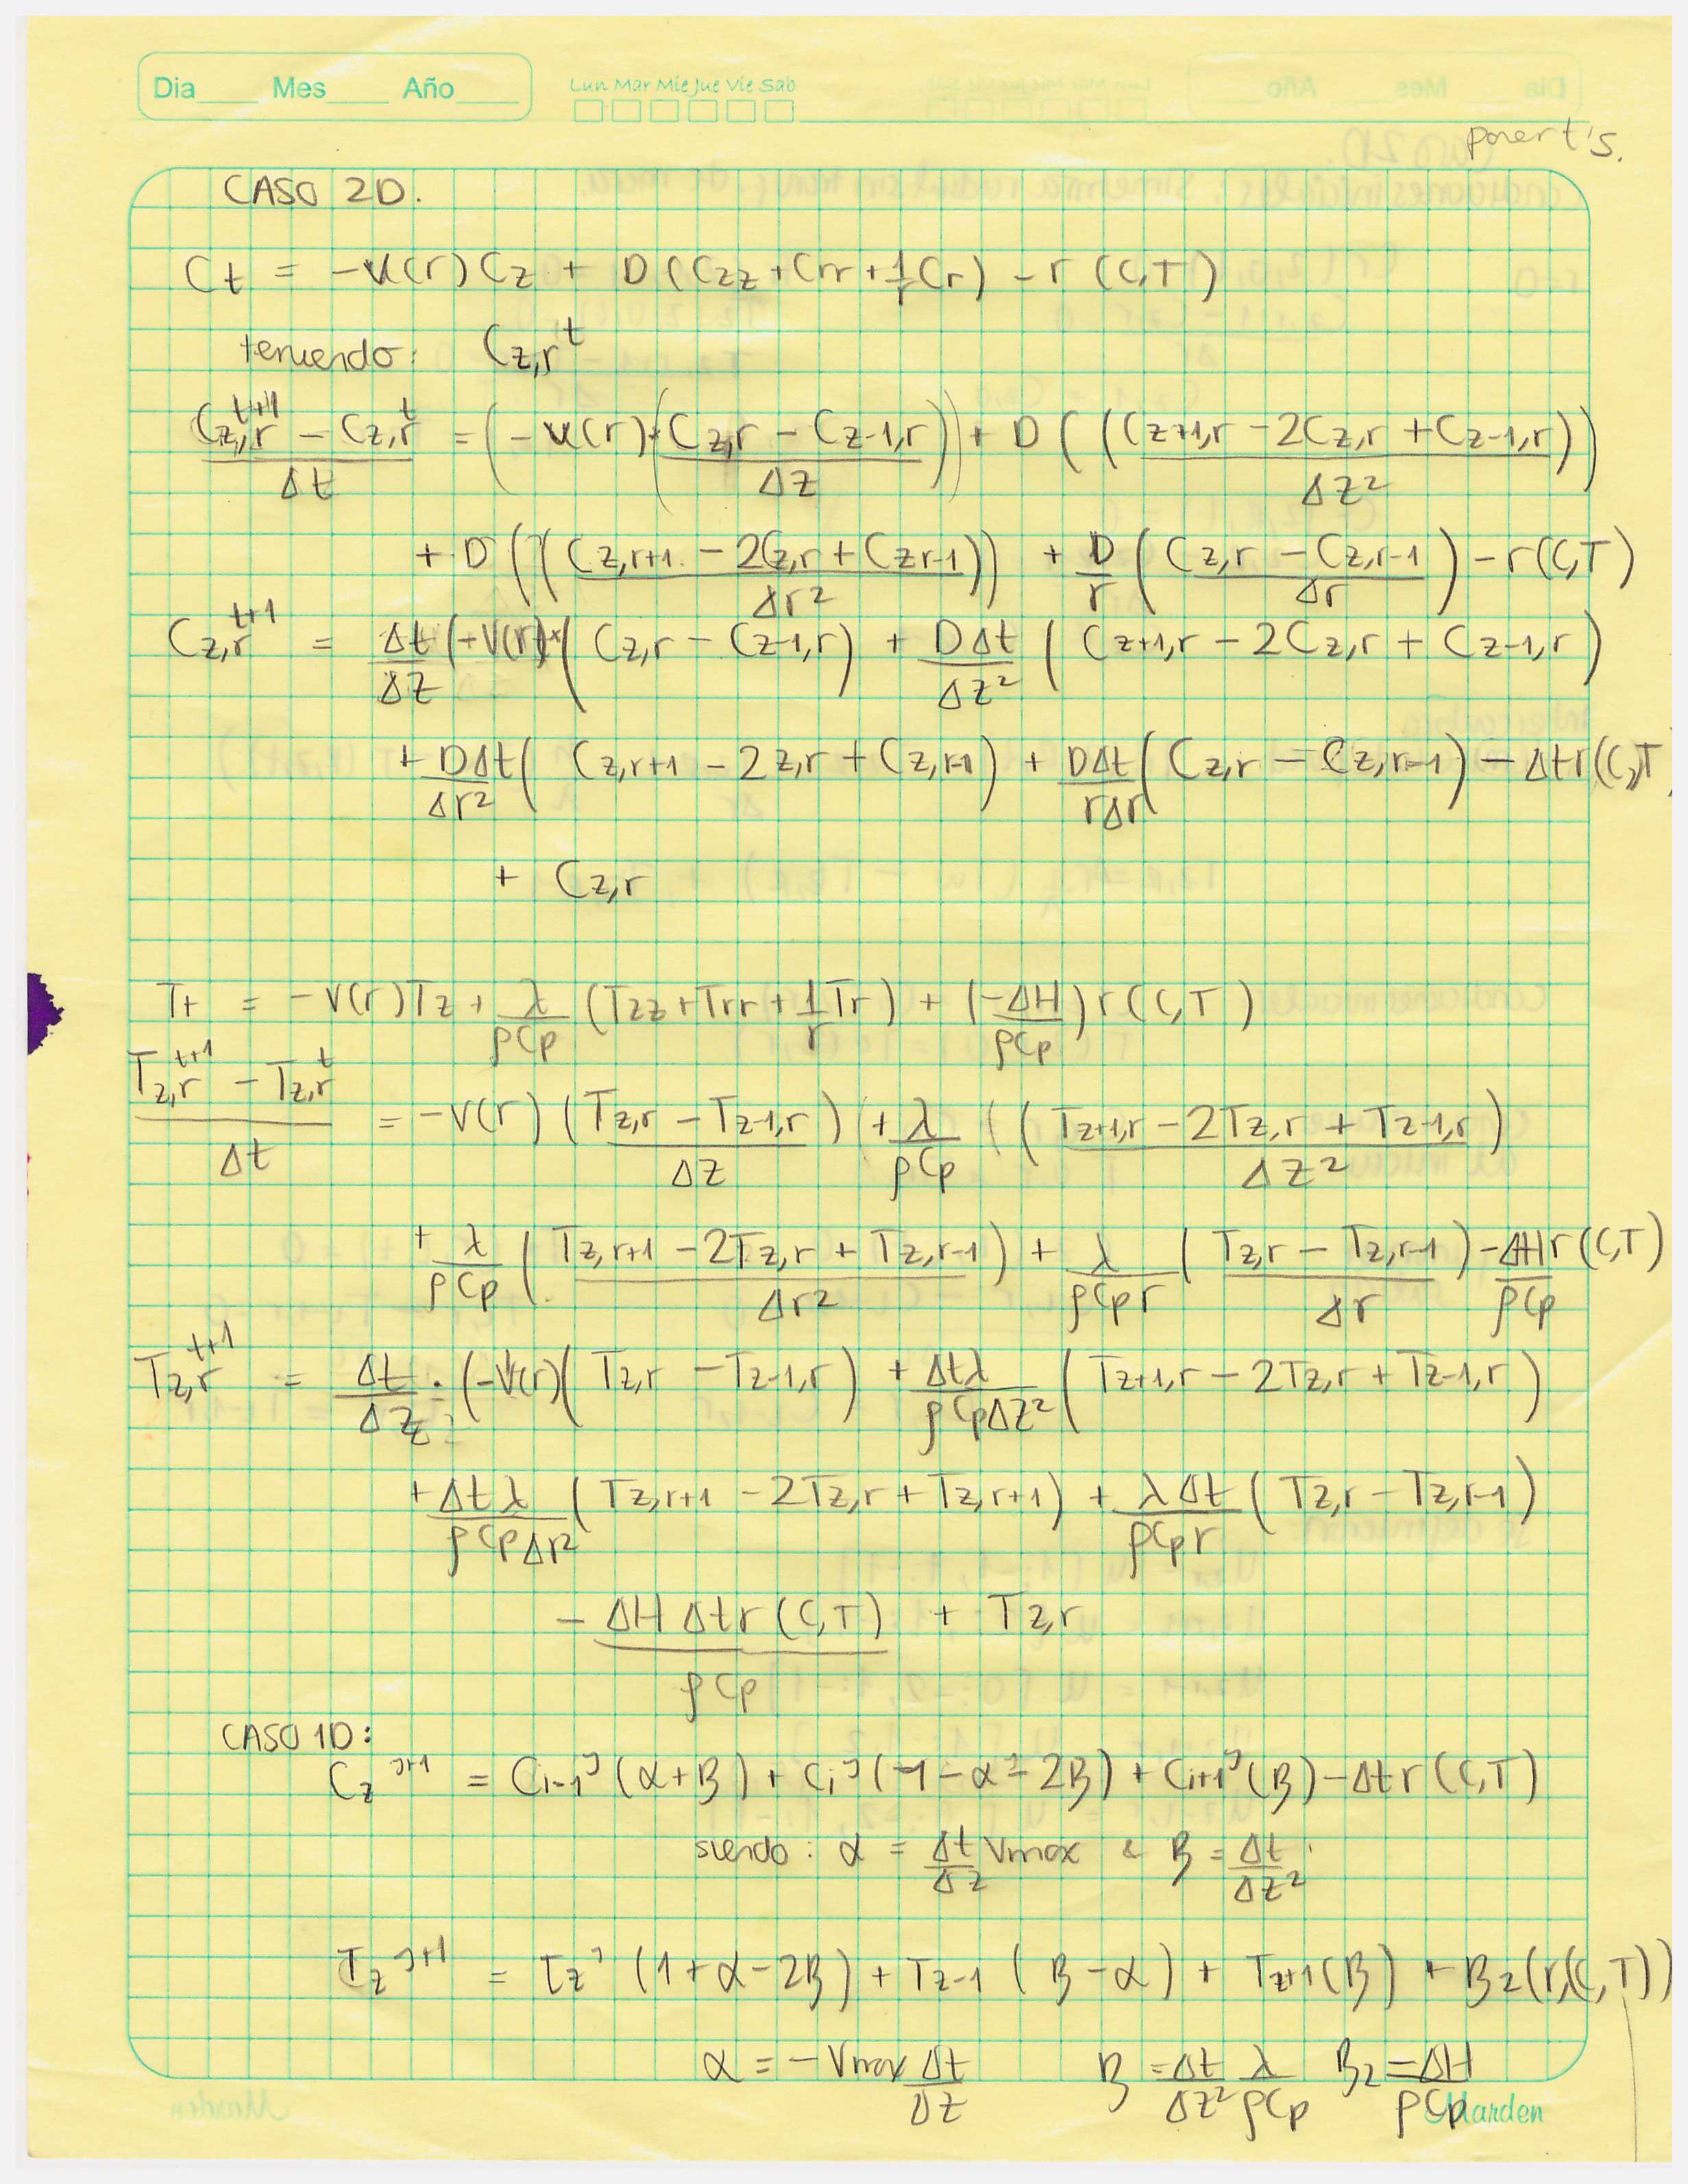 Dia Mes Año Lun Mar Mie Jue Vie Sab
poner t's.
CASO 2D.
Ct = -v(r)Cz + D(Czz + Crr + 1/r Cr) - r(C,T)
teniendo: Cz,r^t
(Cz,r^t+1 - Cz,r^t)/Δt = (-v(r)·(Cz,r - Cz-1,r)/Δz) + D(((Cz+1,r - 2Cz,r + Cz-1,r)/Δz²))
+ D(((Cz,r+1 - 2Cz,r + Czr-1)/Δr²)) + D/r((Cz,r - Cz,r-1)/Δr) - r(C,T)
Cz,r^t+1 = Δt/Δz (-v(r))*(Cz,r - Cz-1,r) + DΔt/Δz² (Cz+1,r - 2Cz,r + Cz-1,r)
+ DΔt/Δr² (Cz,r+1 - 2z,r + Cz,r-1) + DΔt/rΔr (Cz,r - Cz,r-1) - Δtr(C,T
+ Cz,r
Tt = -v(r)Tz + λ/ρCp (Tzz + Trr + 1/r Tr) + (-ΔH/ρCp) r(C,T)
(Tz,r^t+1 - Tz,r^t)/Δt = -v(r) (Tz,r - Tz-1,r)/Δz + λ/ρCp ((Tz+1,r - 2Tz,r + Tz-1,r)/Δz²)
+ λ/ρCp ((Tz,r+1 - 2Tz,r + Tz,r-1)/Δr²) + λ/ρCpr ((Tz,r - Tz,r-1)/Δr) - ΔH/ρCp r(C,T)
Tz,r^t+1 = Δt/Δz · (-v(r)(Tz,r - Tz-1,r) + Δtλ/ρCpΔz² (Tz+1,r - 2Tz,r + Tz-1,r)
+ Δtλ/ρCpΔr² (Tz,r+1 - 2Tz,r + Tz,r+1) + λΔt/ρCpr (Tz,r - Tz,r-1)
- ΔHΔtr(C,T)/ρCp + Tz,r
CASO 1D:
Cz^j+1 = Ci-1^j (α+B) + Ci^j (1 - α - 2B) + Ci+1^j (B) - Δtr(C,T)
siendo: α = Δt/Δz Vmax & B = Δt/Δz²
Tz^j+1 = Tz^j (1 + α - 2B) + Tz-1 (B - α) + Tz+1 (B) + B2(r,(C,T))
α = -Vmax Δt/Δz B = Δt/Δz² λ/ρCp B2 = ΔH/ρCp
Marden